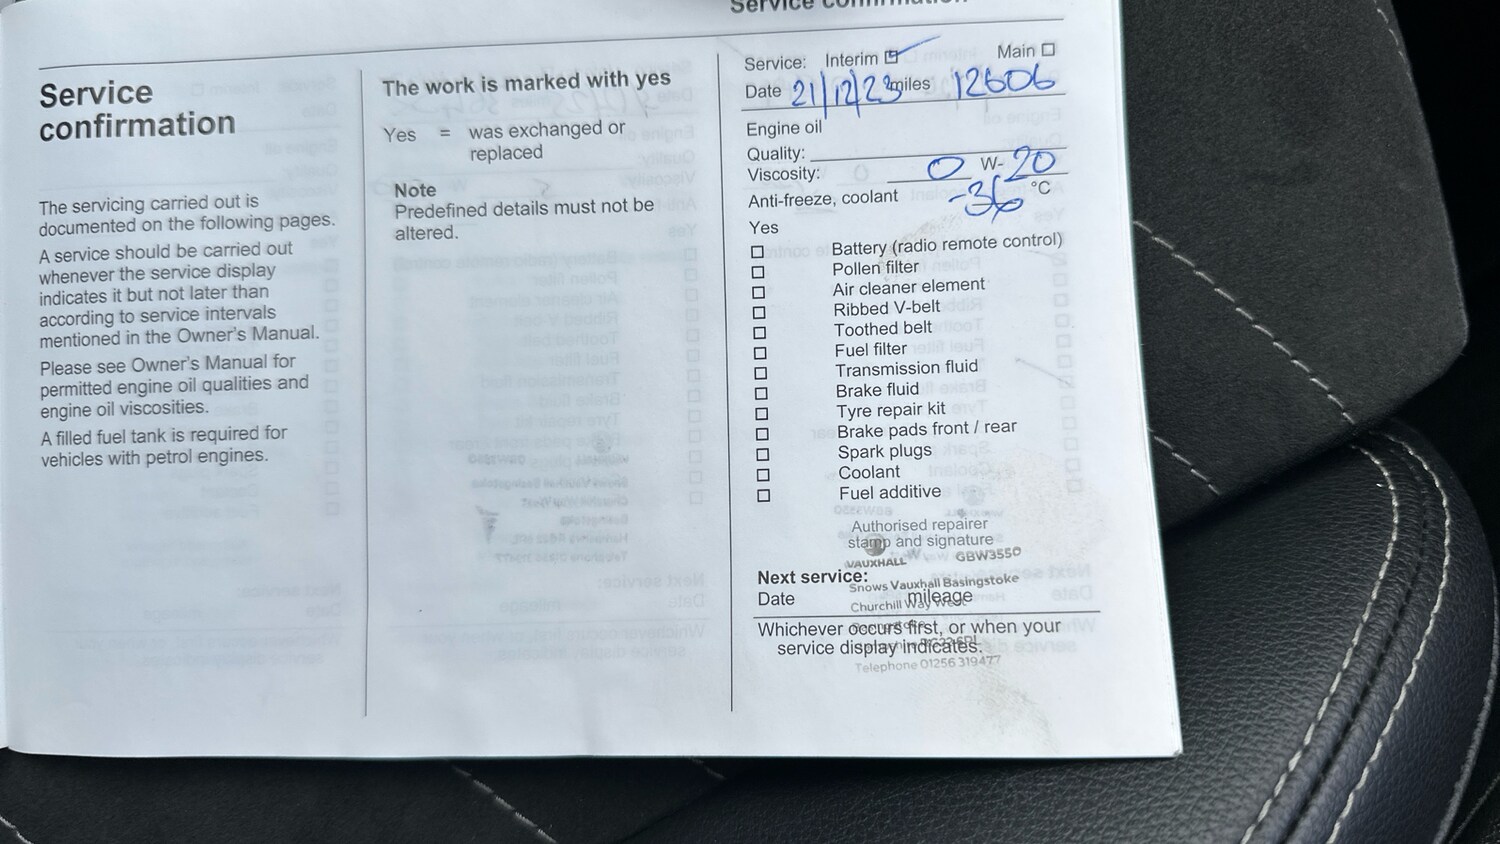 Service confirmation
Service
confirmation
The servicing carried out is
documented on the following pages.
A service should be carried out
whenever the service display
indicates it but not later than
according to service intervals
mentioned in the Owner's Manual.
Please see Owner's Manual for
permitted engine oil qualities and
engine oil viscosities.
A filled fuel tank is required for
vehicles with petrol engines.
The work is marked with yes
Yes = was exchanged or
replaced
Note
Predefined details must not be
altered.
Service: Interim Main
Date 21/12/23 miles 12606
Engine oil
Quality:
Viscosity: 0 W- 20
Anti-freeze, coolant -36 °C
Yes
Battery (radio remote control)
Pollen filter
Air cleaner element
Ribbed V-belt
Toothed belt
Fuel filter
Transmission fluid
Brake fluid
Tyre repair kit
Brake pads front / rear
Spark plugs
Coolant
Fuel additive
Authorised repairer
stamp and signature
VAUXHALL GBW3550
Next service:
Snows Vauxhall Basingstoke
Date mileage
Churchill Way West
Whichever occurs first, or when your
service display indicates.
Telephone 01256 319477